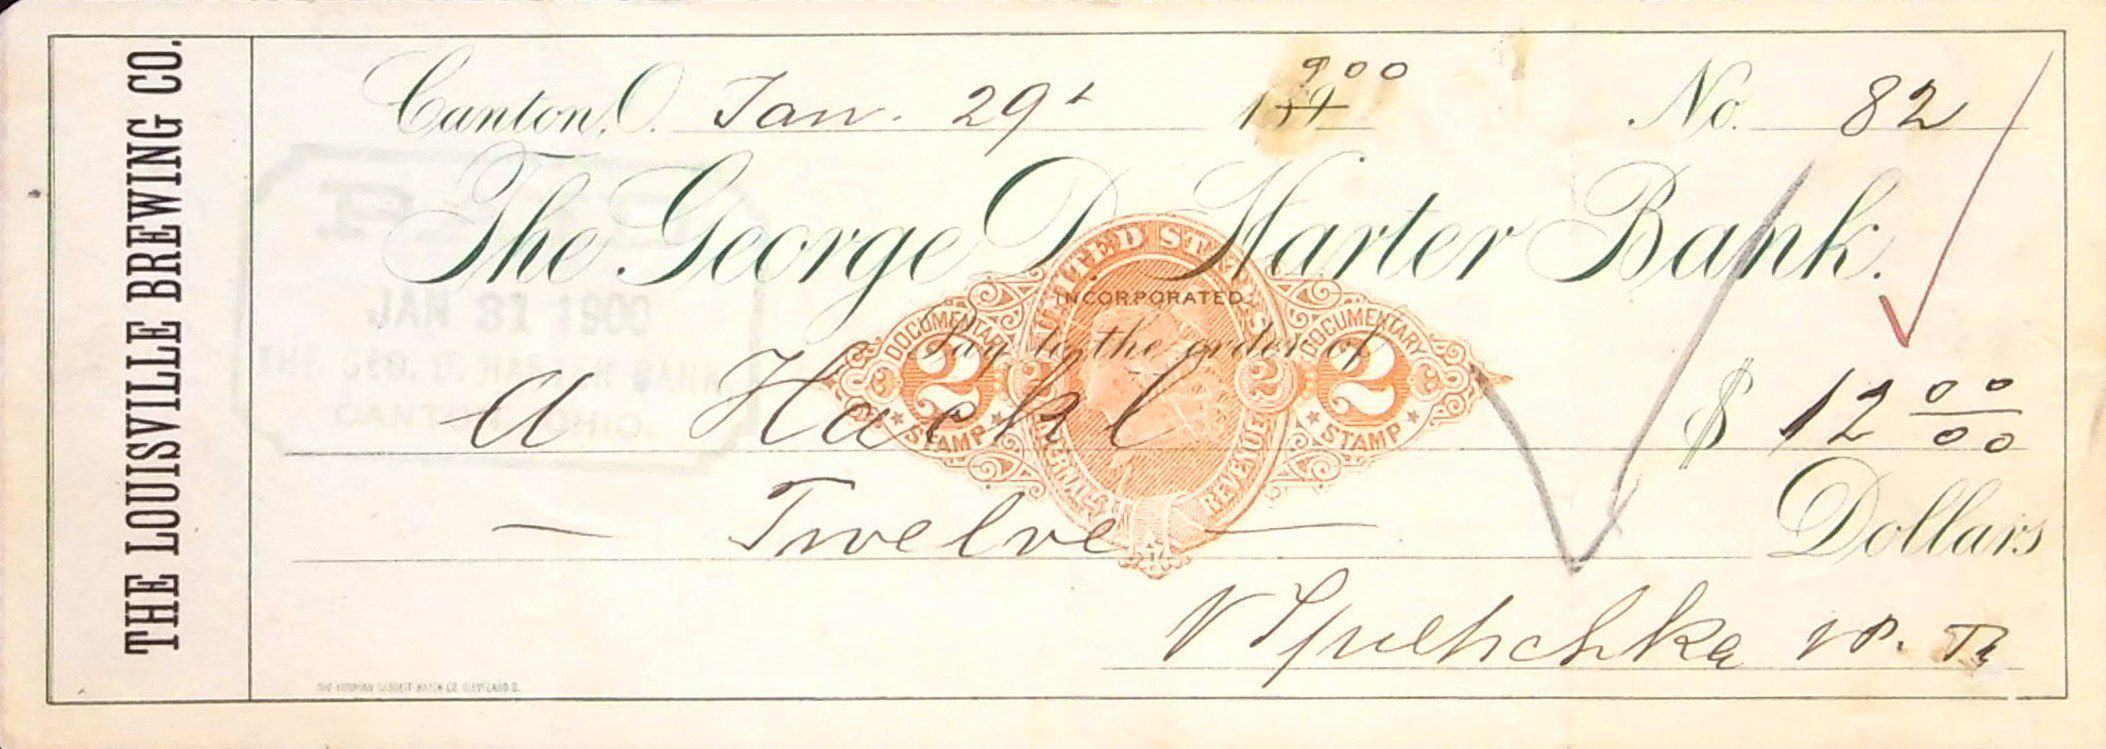 THE LOUISVILLE BREWING CO.
Canton, O. Jan. 29th 1900 No. 82
The George D. Harter Bank.
INCORPORATED
Pay to the order of
A Hackl $ 12 00/00
— Twelve — Dollars
UNITED STATES
INTERNAL REVENUE
DOCUMENTARY 2 STAMP
2 2
DOCUMENTARY 2 STAMP
JAN 31 1900
THE GEO. D. HARTER BANK,
CANTON, OHIO.